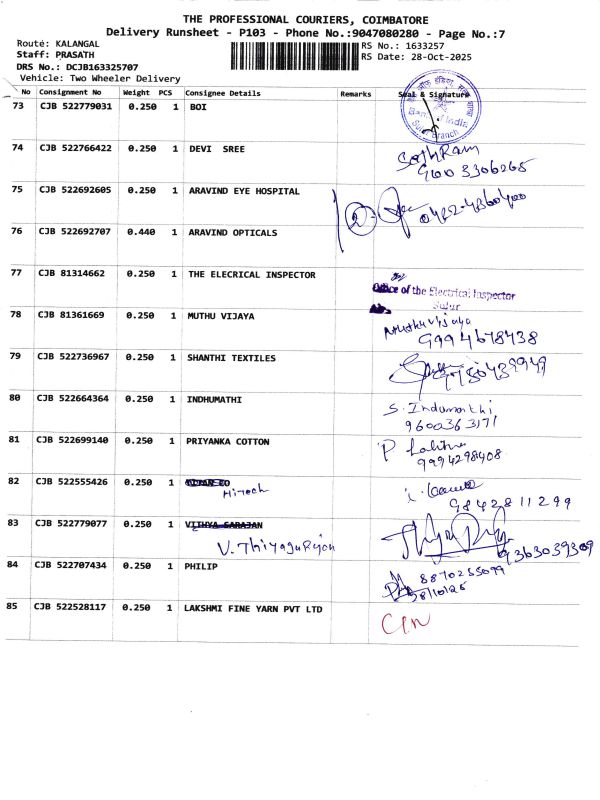 THE PROFESSIONAL COURIERS, COIMBATORE
Delivery Runsheet - P103 - Phone No.:9047080280 - Page No.:7
Route: KALANGAL
RS No.: 1633257
Staff: PRASATH
RS Date: 28-Oct-2025
DRS No.: DCJB163325707
Vehicle: Two Wheeler Delivery
No Consignment No Weight PCS Consignee Details Remarks Seal & Signature
73 CJB 522779031 0.250 1 BOI
Bank of India
Branch
74 CJB 522766422 0.250 1 DEVI SREE
9600 3306265
75 CJB 522692605 0.250 1 ARAVIND EYE HOSPITAL
0422-4360400
76 CJB 522692707 0.440 1 ARAVIND OPTICALS
77 CJB 81314662 0.250 1 THE ELECRICAL INSPECTOR
Office of the Electrical Inspector
Sulur
78 CJB 81361669 0.250 1 MUTHU VIJAYA
Muthu vijaya
9994678438
79 CJB 522736967 0.250 1 SHANTHI TEXTILES
80 CJB 522664364 0.250 1 INDHUMATHI
S. Indumathi
9600363171
81 CJB 522699140 0.250 1 PRIYANKA COTTON
9994298408
82 CJB 522555426 0.250 1
Hitech
98428 11299
83 CJB 522779077 0.250 1 VITHYA SARAJAN
V. Thiyagurajan
9363039309
84 CJB 522707434 0.250 1 PHILIP
8870255099
28/10/25
85 CJB 522528117 0.250 1 LAKSHMI FINE YARN PVT LTD